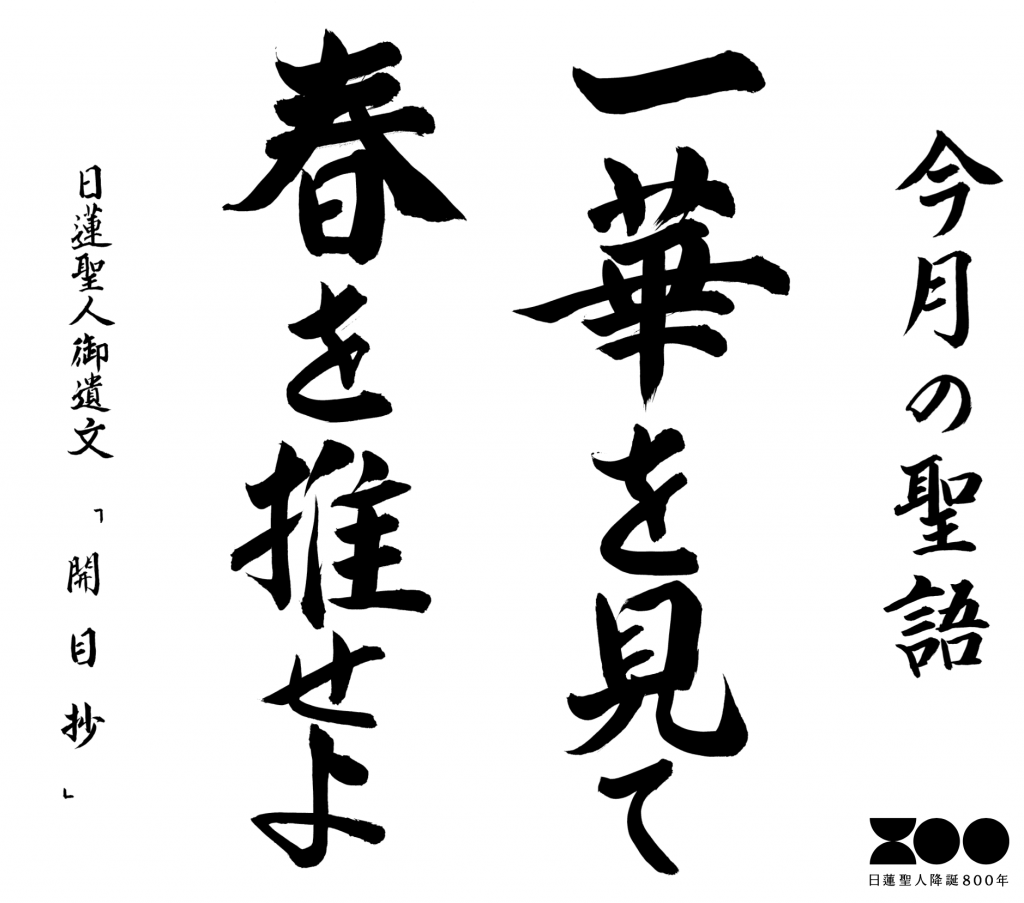 今月の聖語
一華を見て
春を推せよ
日蓮聖人御遺文「開目抄」
800
日蓮聖人降誕800年